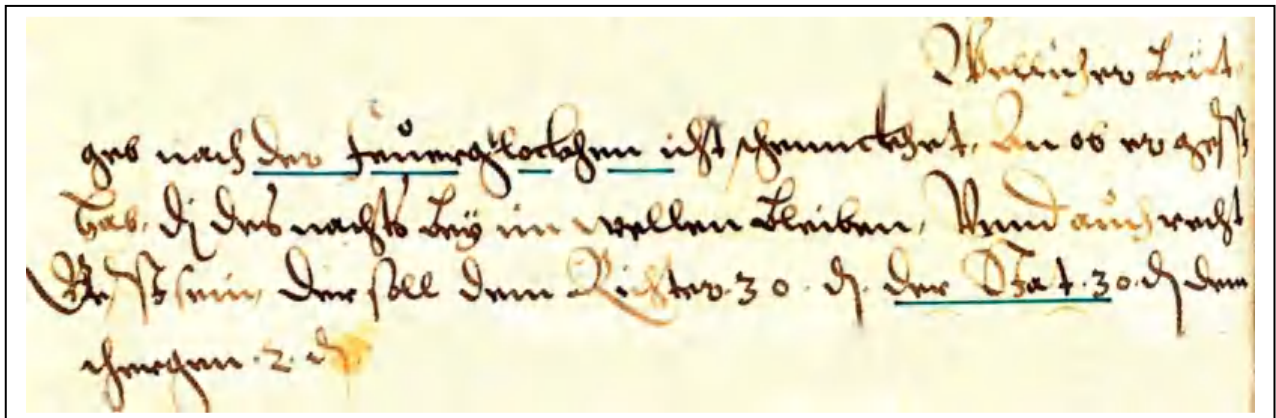 Wellicher Leut
geb nach der feuerglockhen icht schennckhet, An ob er gesst
hab, di des nachts bey im wellen bleiben, Vnnd auch recht
Gesst sein, Der soll dem Richter. 30. d. der Stat. 30. d dem
schergen. 2. d.